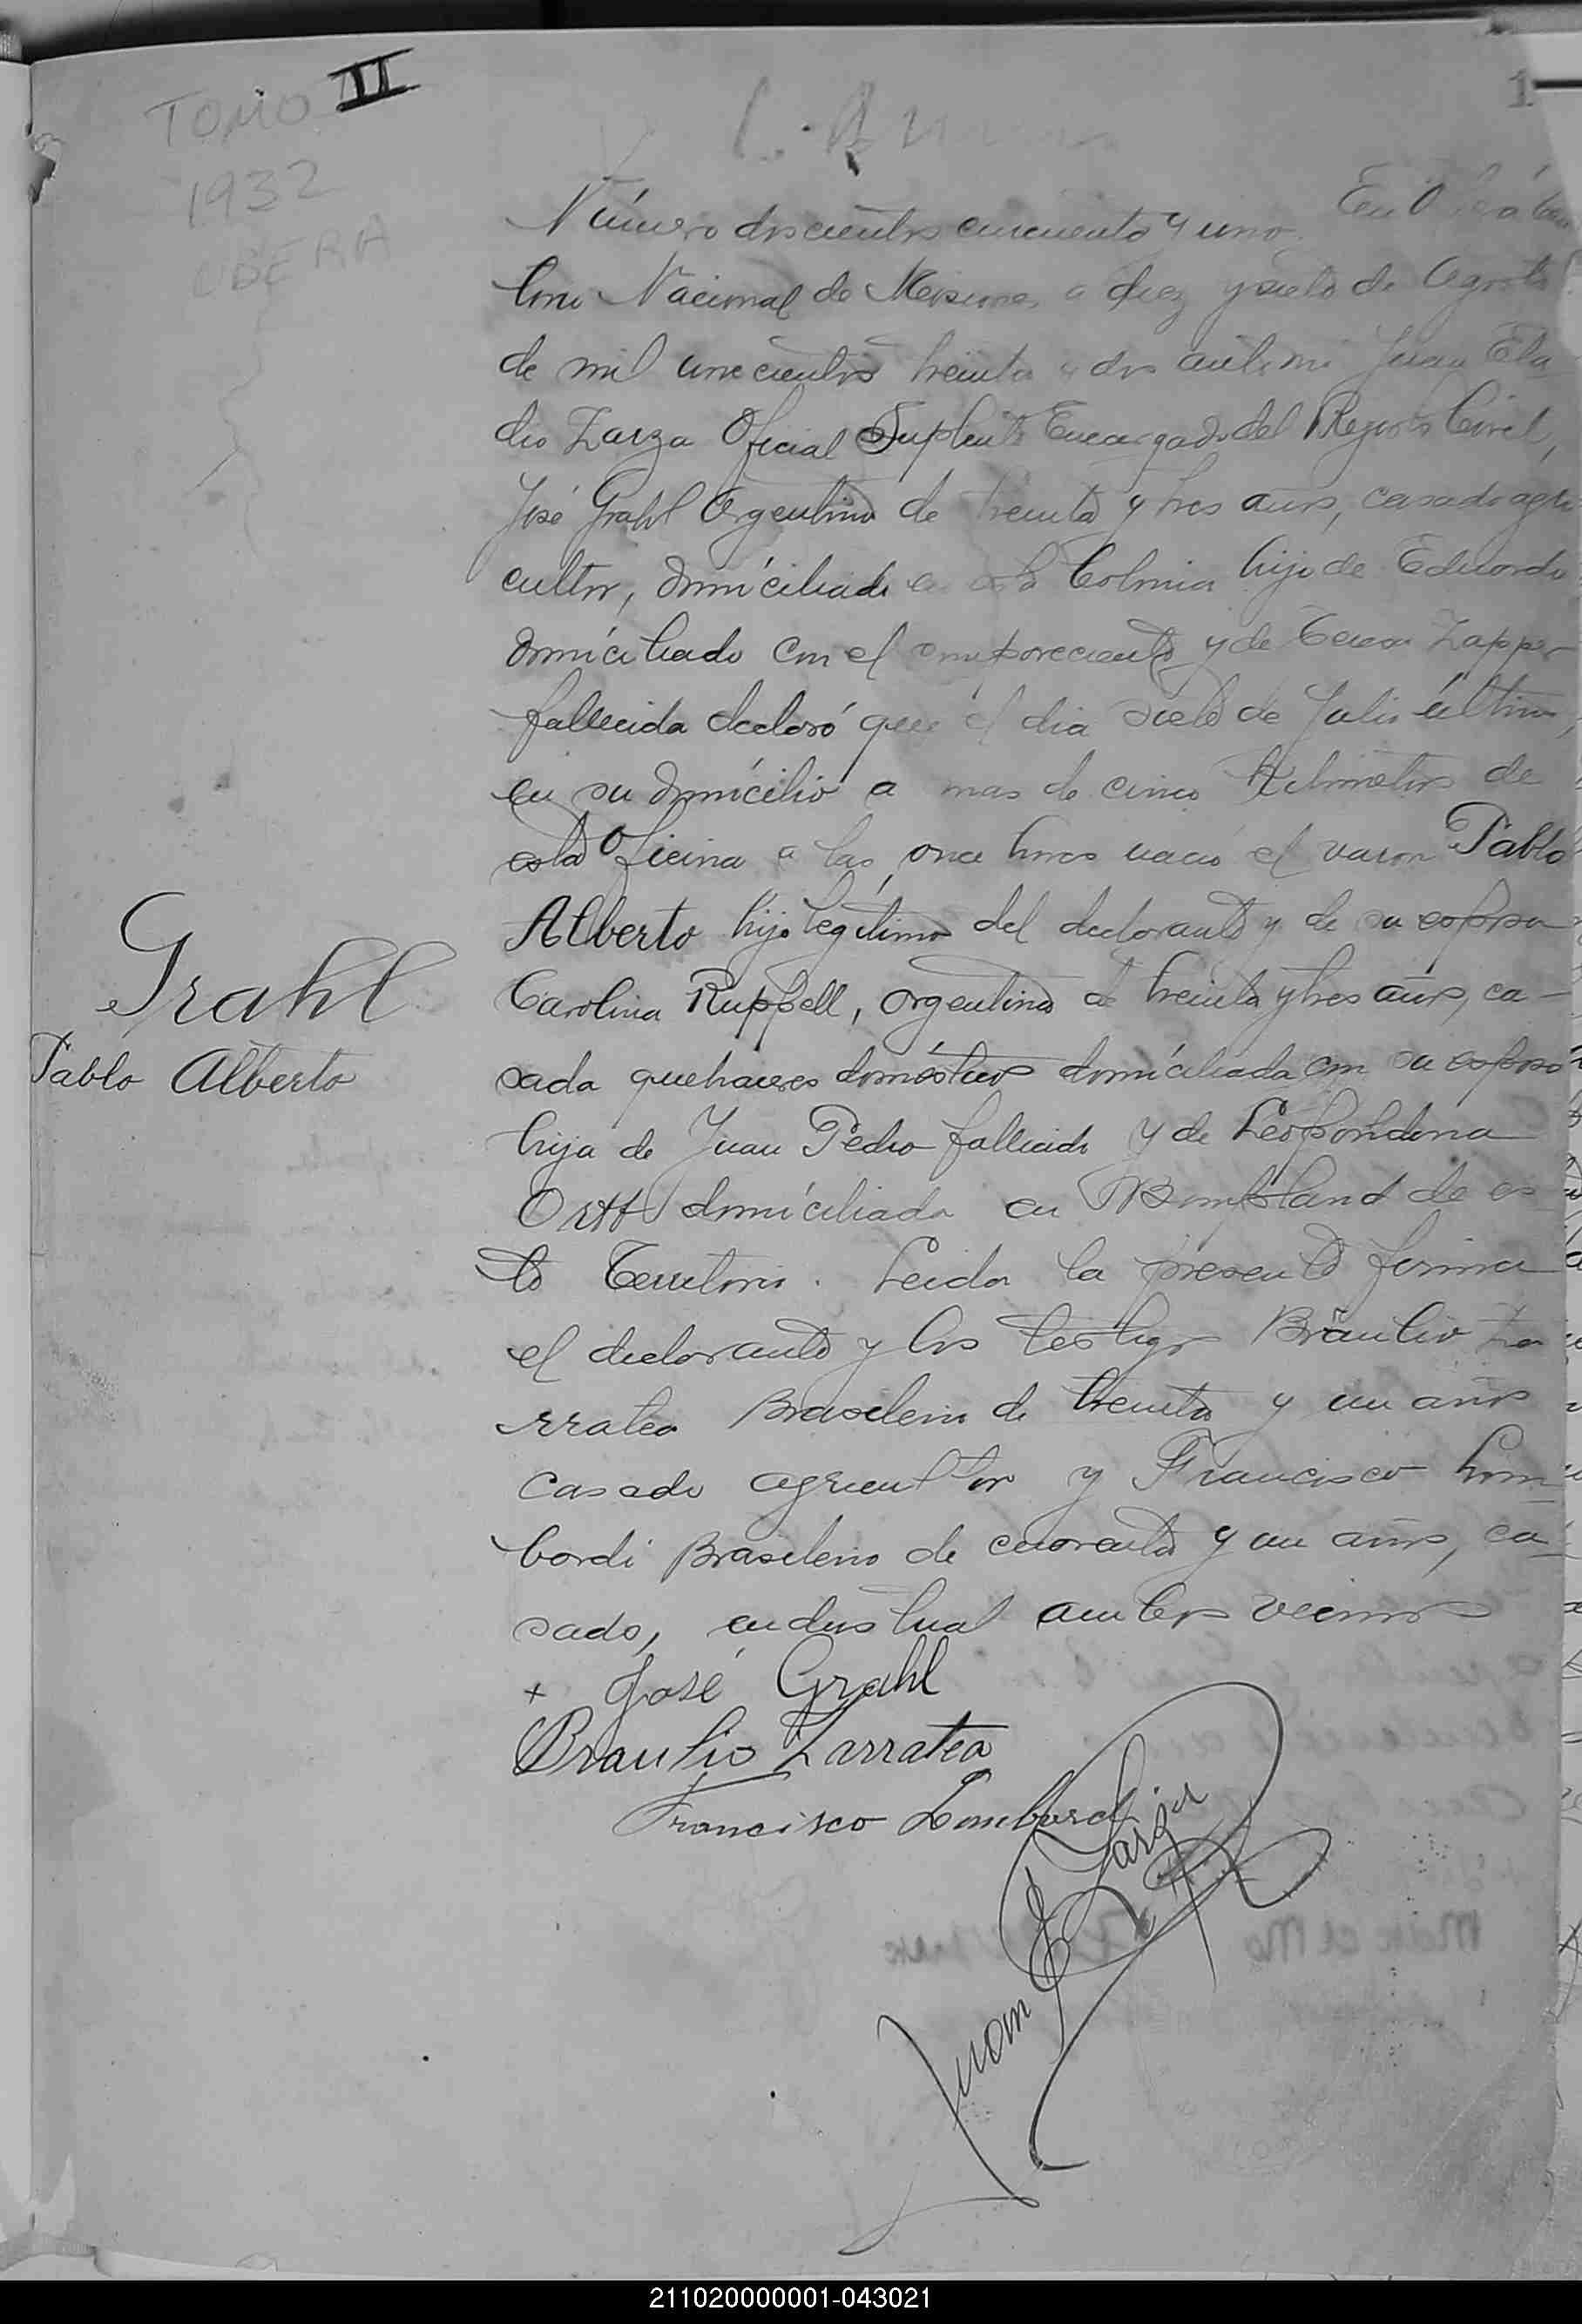 TOMO II
1932
OBERA
1
Número doscientos cincuenta y uno. En Oberá
Nacional de Misiones a diez y siete de Agosto
de mil novecientos treinta y dos ante mi Juan Ela
dio Zarza Oficial Suplente Encargado del Registro Civil,
José Grahl Argentino de treinta y tres años, casado agri
cultor, domiciliado en esta Colonia hijo de Eduardo
domiciliado con el compareciente y de Teresa Zapper
fallecida declaró que el dia siete de Julio último,
en su domícilio a mas de cinco Kilometros de
esta Oficina a las once horas nacio el varon Pablo
Alberto hijo legítimo del declarante y de su esposa
Grahl
Pablo Alberto
Carolina Ruppell, argentina de treinta y tres años, ca-
sada quehaceres domésticos domíciliada con su esposo
hija de Juan Pedro fallecido y de Leopondina
Ortt domíciliada en Bompland de es
te Territorio. Leida la presente firma
el declarante y los testigos Braulio Za
rratea Brasilero de treinta y un años
casado agricultor y Francisco Lom-
bardi Brasilero de cuarenta y un años, ca-
sado, industrial ambos vecinos
+ José Grahl
Braulio Zarratea
Francisco Lombardi
Juan E Zarza
211020000001-043021